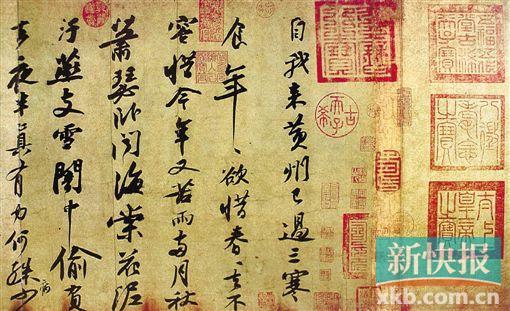 自我来黄州已過三寒
食年〻欲惜春〻去不
容惜今年又苦雨兩月秋
蕭瑟卧聞海棠花泥
汙燕支雪闇中偷負
去夜半真有力何殊少
病
古希天子
八徵耄念之寶
新快报
xkb.com.cn